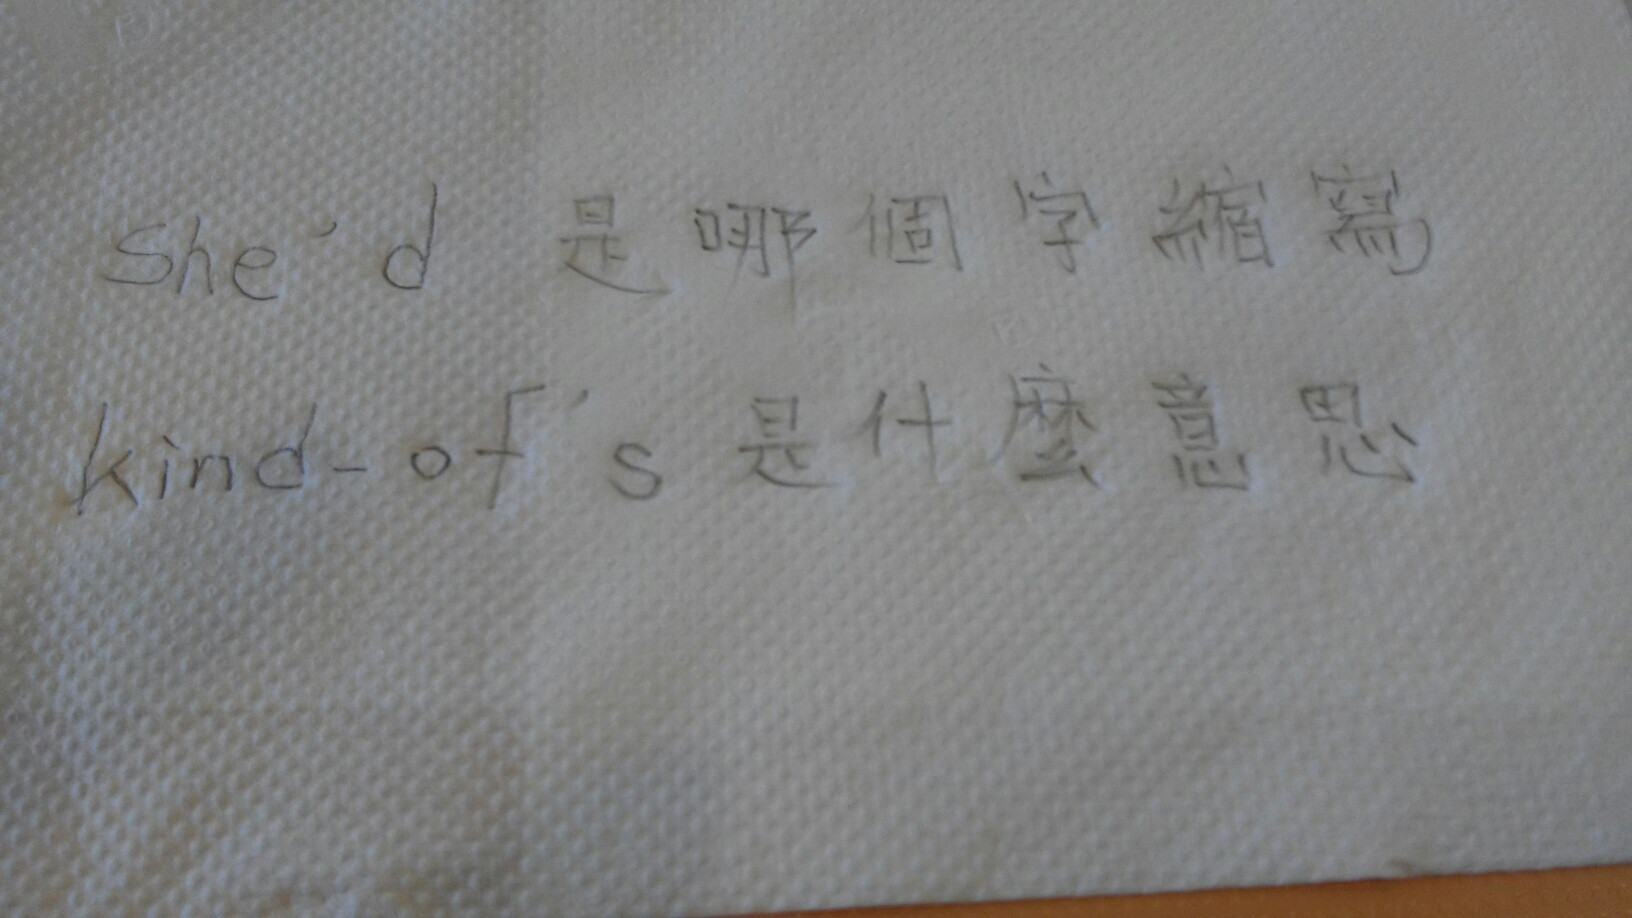 she'd 是哪個字縮寫
kind-of's 是什麼意思